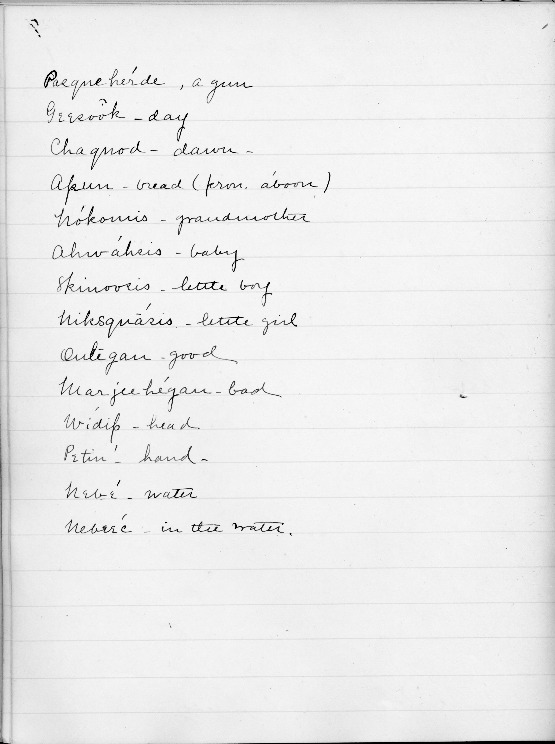 Pasquehérde, a gun
Geesoŏk - day
Chaquod - dawn -
Apun - bread (pron. áboon)
Nókomis - grandmother
Ahwáhsis - baby
Skinoosis - little boy
Niksquāsis - little girl
Oulegan - good
Marjeehégan - bad
Wídip - head
Petin' - hand -
Nebé - water
Nebeeé - in the water.